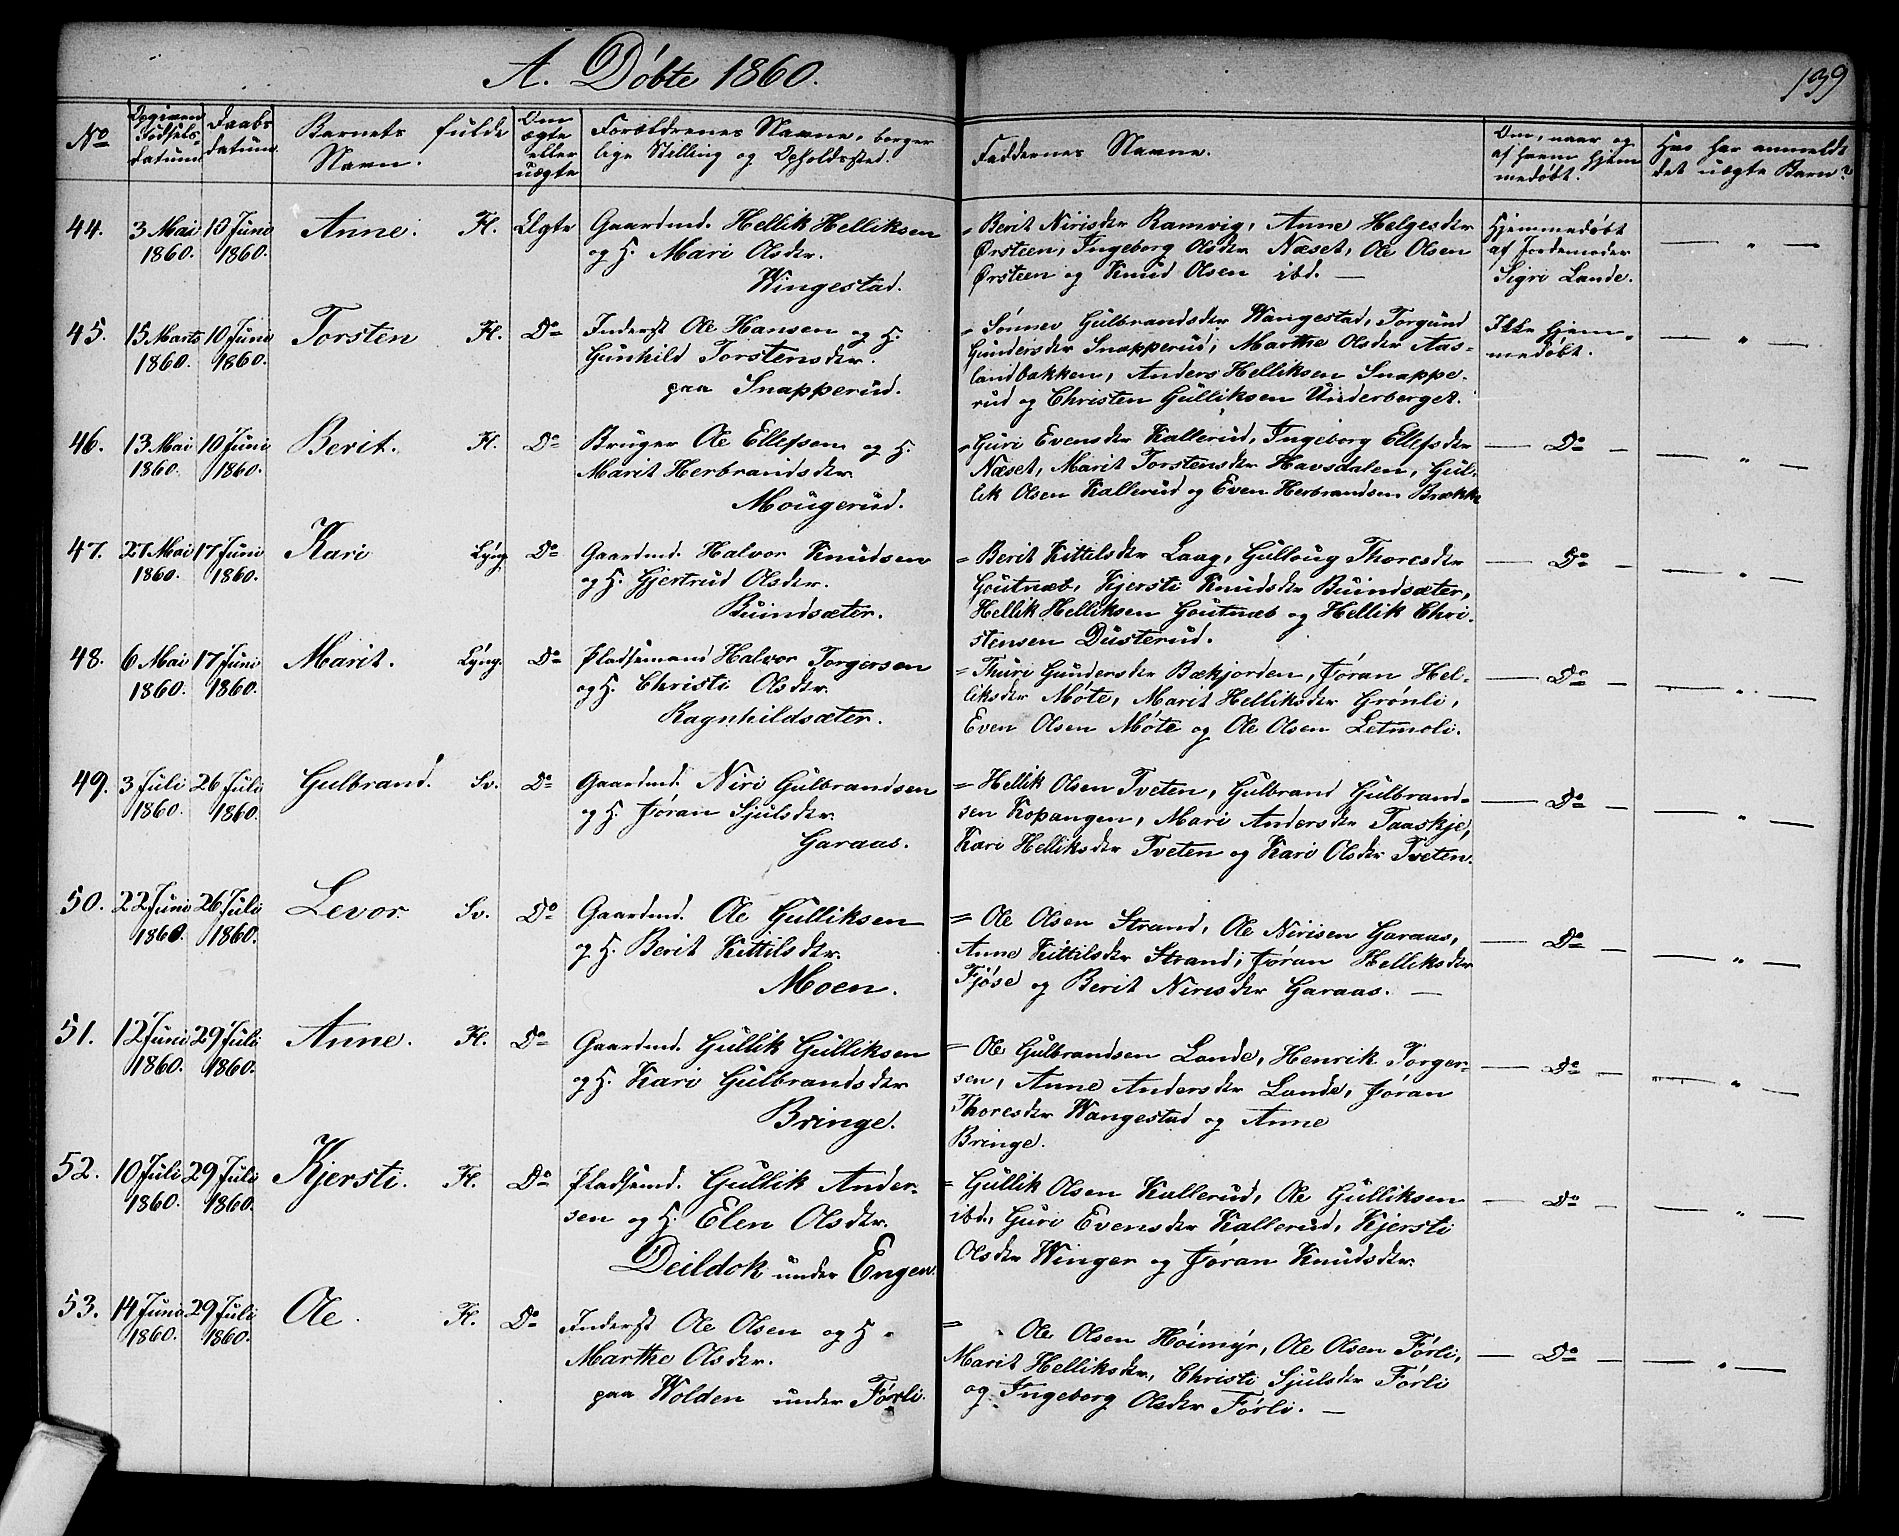 A. Döbte 1860.
139
No
Opgiven Fødselsdatum
Daabsdatum
Barnets fulde Navn.
Om ægte eller uægte
Forældrenes Navne, borgerlige Stilling og Opholdssted.
Faddernes Navne.
Om, naar og af hvem hjemmedøbt.
Hvo har anmeldt det uægte Barn?
44.
3 Mai 1860.
10 Juni 1860.
Anne.
Fl.
Ægte
Gaardmd. Hellik Helliksen
og H. Mari Olsdtr.
Wingestad.
= Berit Nirisdtr Ramvig, Anne Helgesdtr
Ørsteen, Ingeborg Olsdtr Næset, Ole Olsen
Ørsteen og Knud Olsen ibd. —
Hjemmedøbt
af Jordemoder
Sigri Lande.
— " —
45.
15 Marts 1860.
10 Juni 1860.
Torsten
Fl.
Do
Inderst Ole Hansen og H.
Gunhild Torstensdtr.
paa Snapperud.
= Sönnev Gulbrandsdtr Wangestad, Torgund
Gundersdtr Snapperud, Marthe Olsdtr Aas-
landbakken, Anders Helliksen Snappe-
rud og Christen Gulliksen Underberget.
Ikke hjem-
medøbt.
— " —
46.
13 Mai 1860.
10 Juni 1860.
Berit.
Fl.
Do
Bruger Ole Ellefsen og H.
Marit Herbrandsdtr.
Mougerud.
= Guri Evensdtr Kallerud, Ingeborg Ellefsdtr
Næset, Marit Torstensdtr Havsdalen, Gul-
lik Olsen Kallerud og Even Herbrandsen Brække
— Do —
— " —
47.
27 Mai 1860.
17 Juni 1860.
Kari
Lyng
Do
Gaardmd. Halvor Knudsen
og H. Gjertrud Olsdtr.
Buindsæter.
= Berit Kittilsdtr Laag, Gulloug Thoresdtr
Goutnæb, Kjersti Knudsdtr Buindsæter,
Hellik Helliksen Goutnæb og Hellik Chri-
stensen Dusterud.
— Do —
— " —
48.
6 Mai 1860.
17 Juni 1860.
Marit.
Lyng.
Do
Pladsemand Halvor Torgersen
og H. Christi Olsdtr.
Ragnhildsæter.
= Thuri Gundersdtr Bækjorden, Jøran Hel-
liksdtr Möte, Marit Helliksdtr Grönli,
Even Olsen Möte og Ole Olsen Letmoli.
— Do —
— " —
49.
3 Juli 1860.
26 Juli 1860.
Gulbrand.
Sv.
Do
Gaardmd. Niri Gulbrandsen
og H. Jøran Sjulsdtr.
Garaas.
= Hellik Olsen Tveten, Gulbrand Gulbrand-
sen Kopangen, Mari Andersdtr Taaskje,
Kari Helliksdtr Tveten og Kari Olsdtr Tveten.
— Do —
— " —
50.
22 Juni 1860.
26 Juli 1860.
Levor
Sv.
Do
Gaardmd. Ole Gulliksen
og H. Berit Kittilsdtr.
Moen.
= Ole Olsen Strand, Ole Nirisen Garaas,
Anne Kittilsdtr Strand, Jøran Helliksdtr
Fjöse og Berit Nirisdtr Garaas. —
— Do —
— " —
51.
12 Juni 1860.
29 Juli 1860.
Anne.
Fl.
Do
Gaardmd. Gullik Gulliksen
og H. Kari Gulbrandsdtr
Bringe.
= Ole Gulbrandsen Lande, Henrik Torger-
sen, Anne Andersdtr Lande, Jøran
Thoresdtr Wangestad og Anne
Bringe.
— Do —
— " —
52.
10 Juli 1860.
29 Juli 1860.
Kjersti.
Fl.
Do
Pladsemd. Gullik Ander-
sen og H. Elen Olsdtr.
Deildok under Engen.
= Gullik Olsen Kallerud, Ole Gulliksen
ibd., Guri Evensdtr Kallerud, Kjersti
Olsdtr Winger og Jøran Knudsdtr.
— Do —
— " —
53.
14 Juni 1860.
29 Juli 1860.
Ole.
Fl.
Do
Inderst Ole Olsen og H.
Marthe Olsdtr.
paa Wolden under Førli.
= Ole Olsen Höimyr, Ole Olsen Førli,
Marit Helliksdtr, Christi Sjulsdtr Førli
og Ingeborg Olsdtr Førli. —
— Do —
— " —